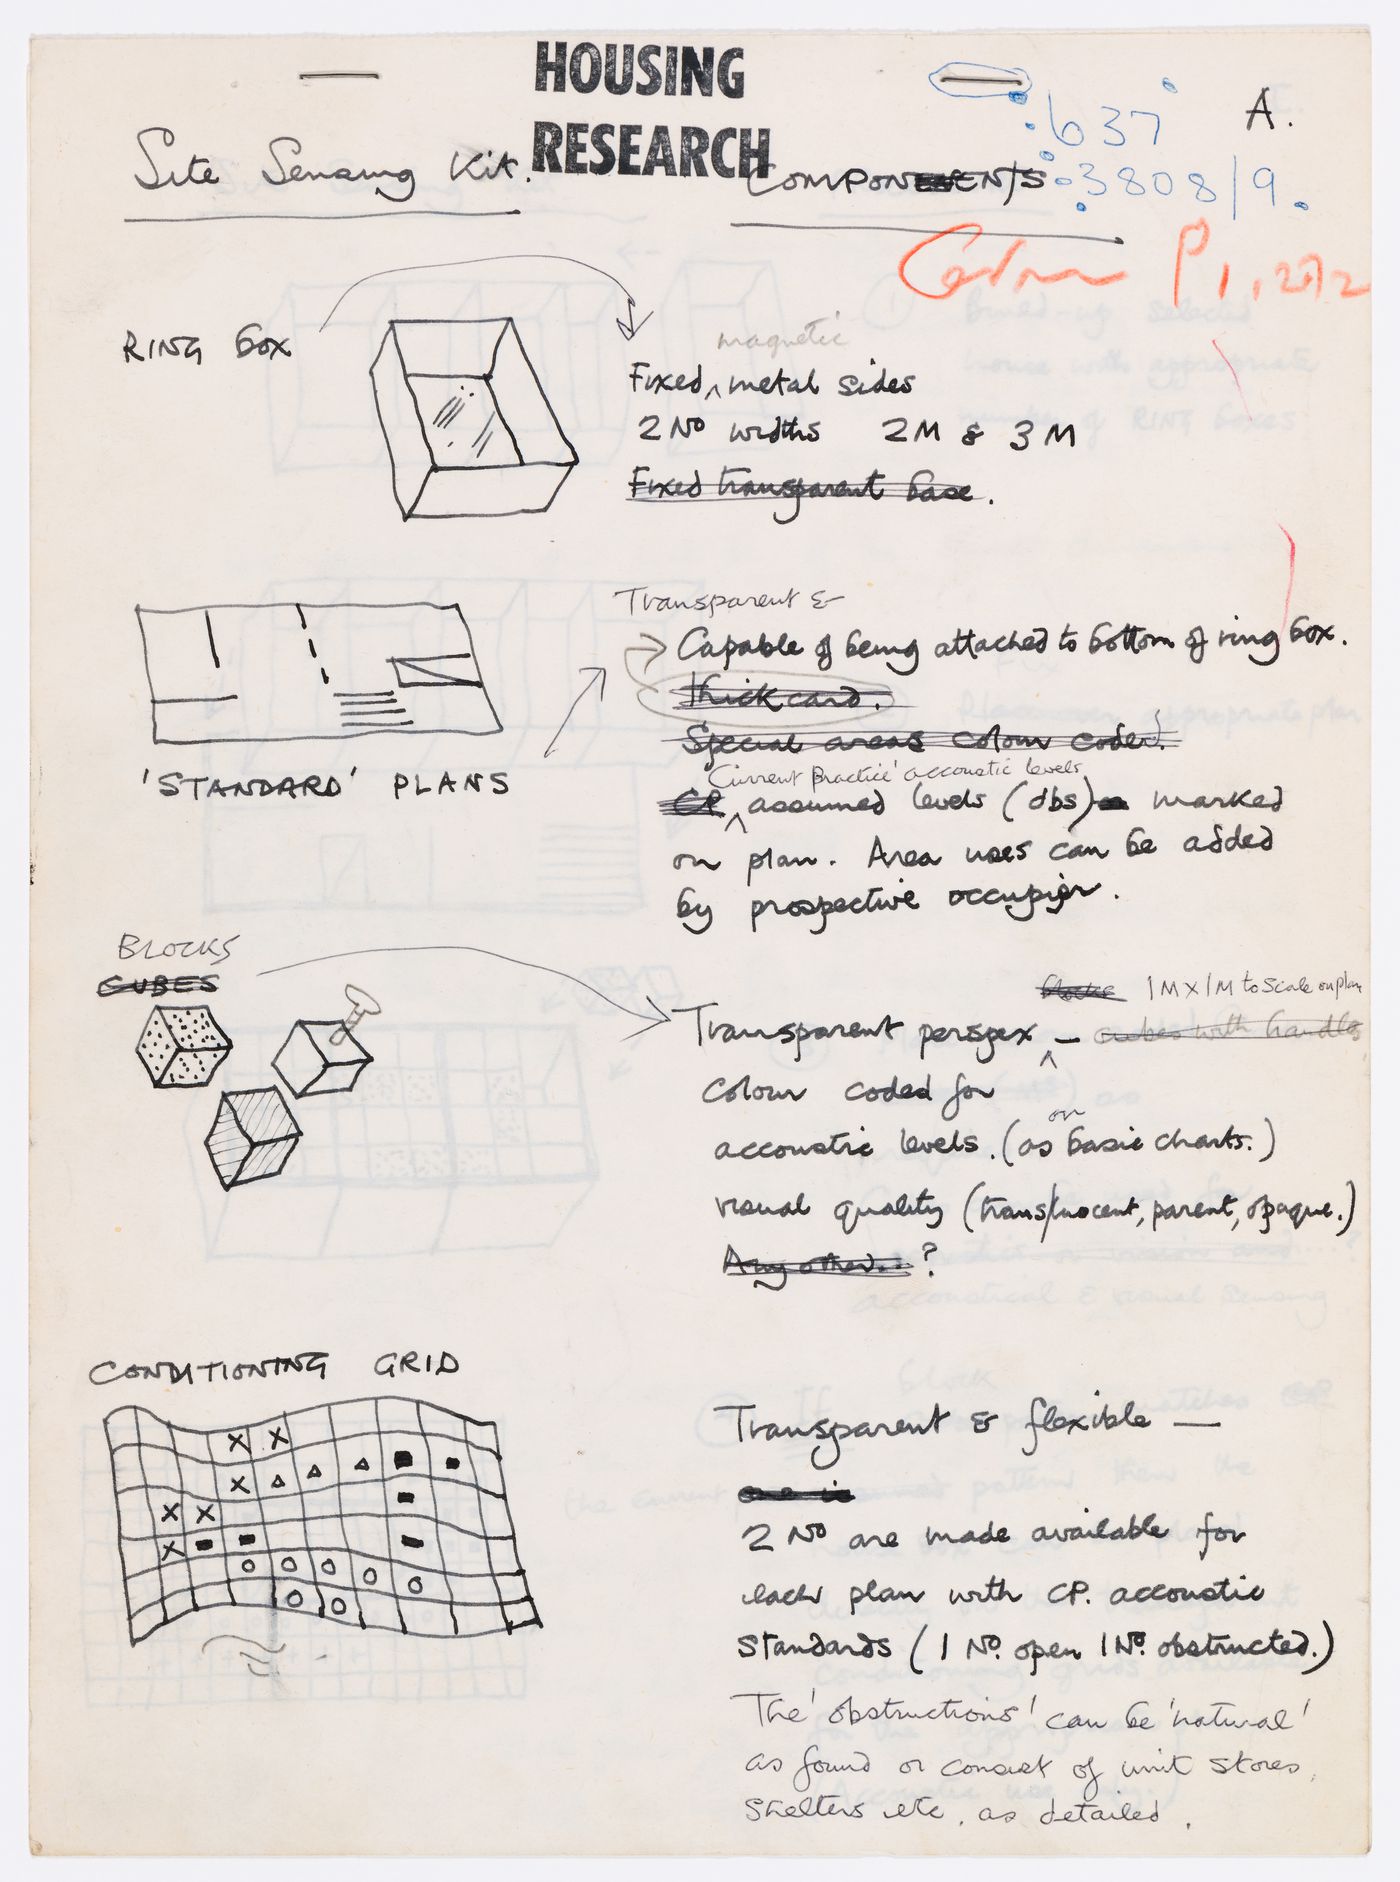 HOUSING
RESEARCH
A.
637
3808/9
Site Sensing Kit.
COMPONENTS
P 1, 2
RING BOX
magnetic
Fixed ^ metal sides
2 No widths 2M & 3M
Fixed transparent base.
Transparent &
Capable of being attached to bottom of ring box.
thick card.
Special areas colour coded.
'Current Practice' accoustic levels
CP ^ assumed levels (dbs) marked
on plan. Area uses can be added
by prospective occupier.
'STANDARD' PLANS
BLOCKS
CUBES
blocks 1M x 1M to scale on plan
Transparent perspex ^ — cubes with handles
colour coded for
on
accoustic levels. (as basic charts.)
visual quality (trans/lucent, parent, opaque.)
Any other... ?
CONDITIONING GRID
Transparent & flexible —
one is
2 No are made available for
each plan with CP. accoustic
standards (1 No. open 1 No. obstructed.)
The 'obstructions' can be 'natural'
as found or consist of unit stores,
shelters etc. as detailed.